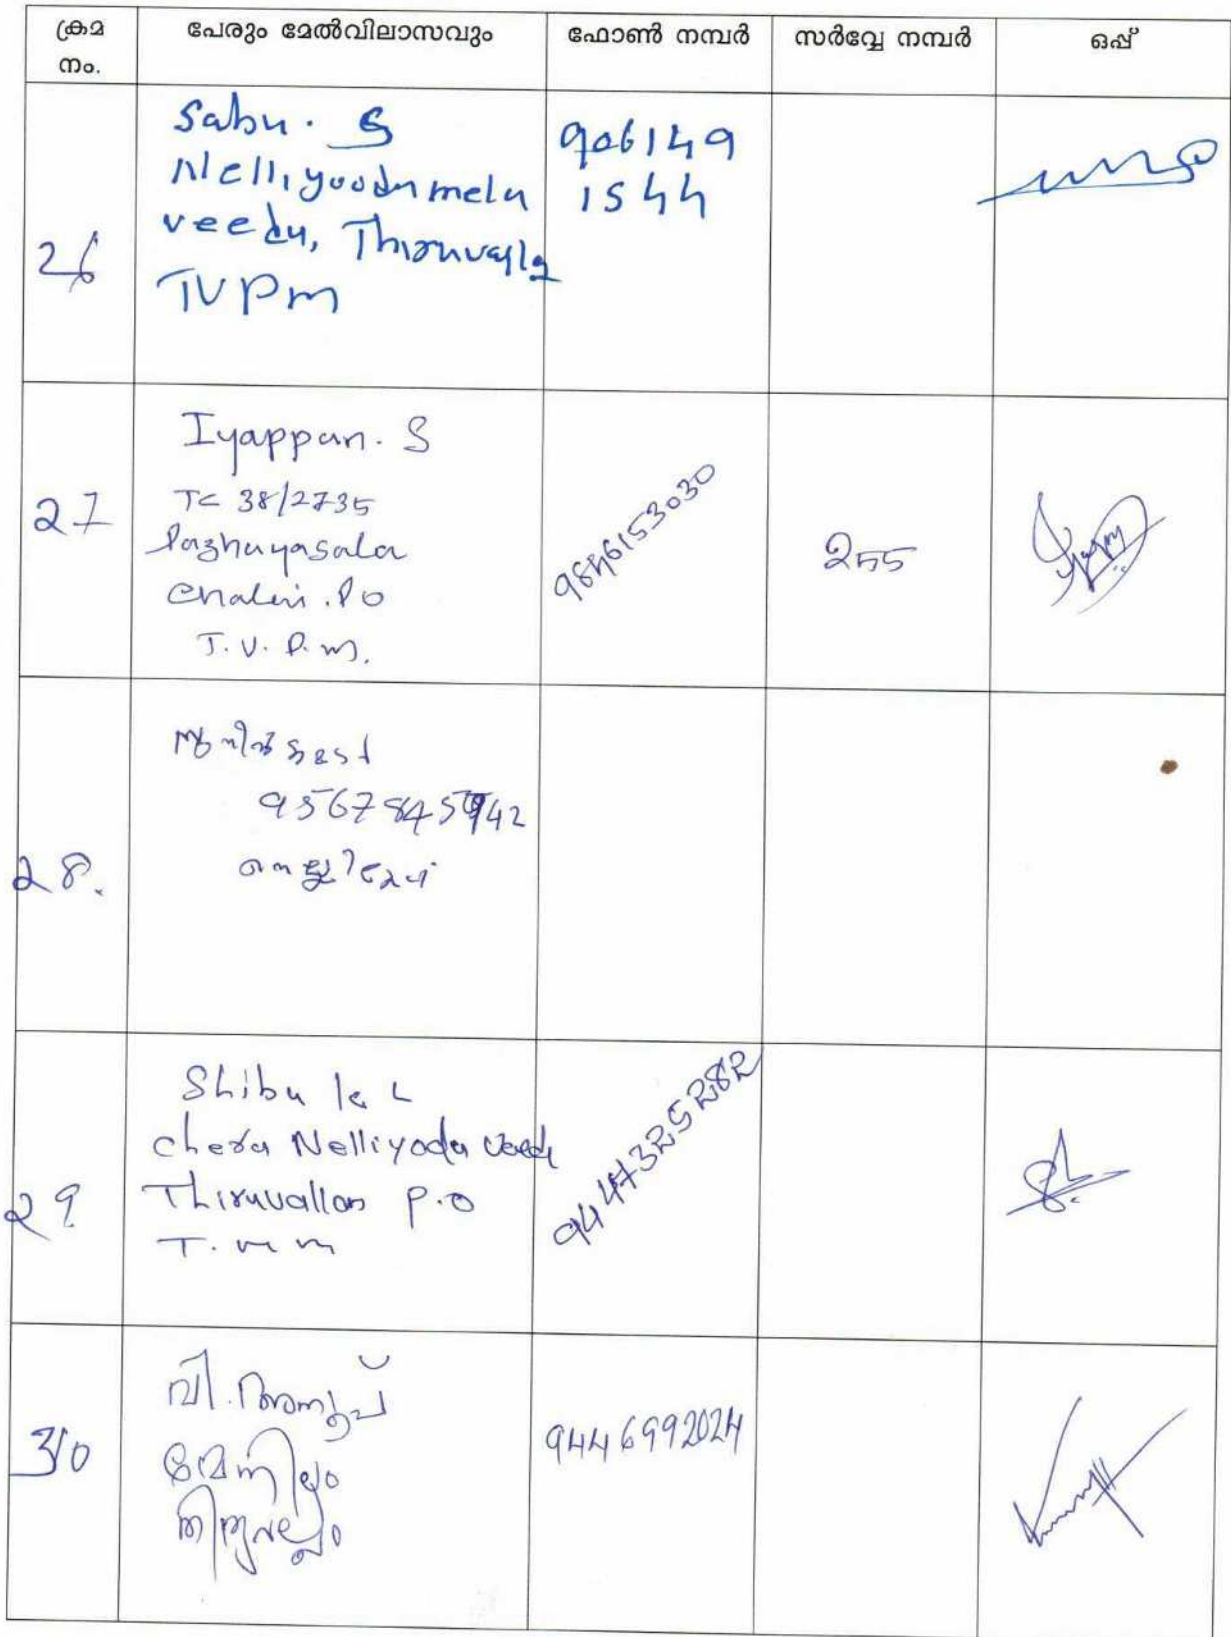 ക്രമ നം. പേരും മേൽവിലാസവും ഫോൺ നമ്പർ സർവ്വേ നമ്പർ ഒപ്പ്
26
Sabu. S
Nelliyoodu melu
veedu, Thiruvalla
TVPM
906149
1544
27
Iyappan. S
TC 38/2735
Pazhayasala
Chalai. PO
T.V.P.M.
9846153030
255
28.
29
Shibu K L
chera Nelliyoda veedu
Thiruvallam P.O
9447325282
30
വി. അനൂപ്
തിരുവല്ലം
9446992024